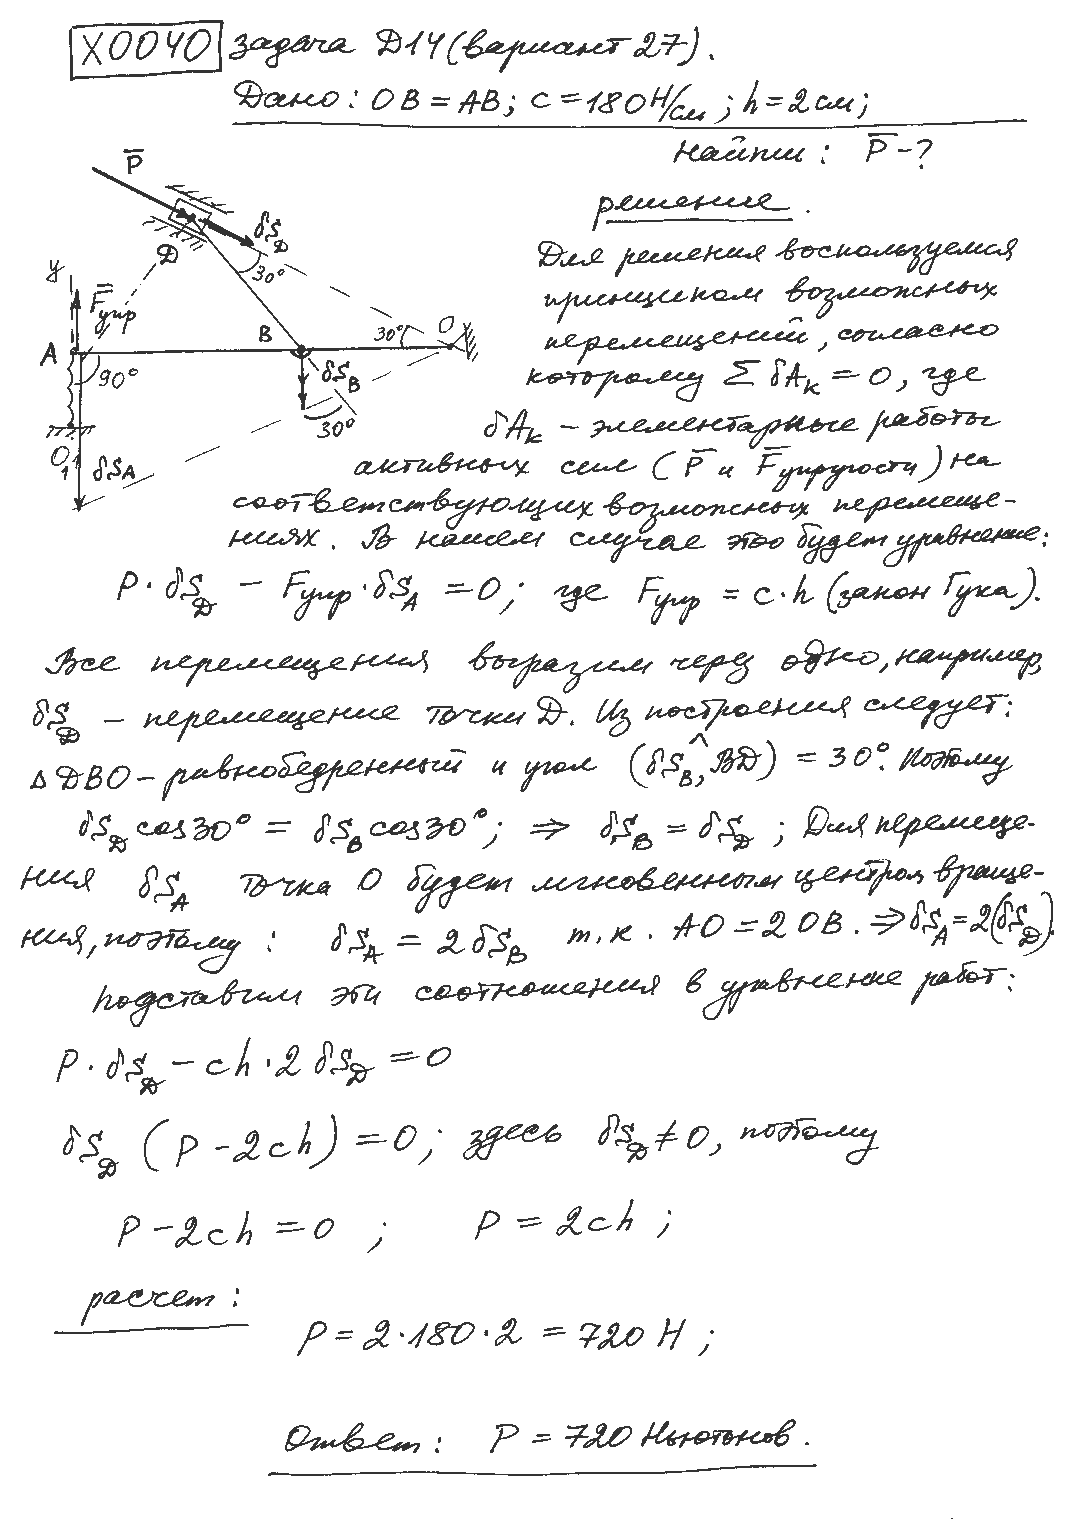 X0040 задача Д14 (вариант 27).
Дано: OB = AB; c = 180 Н/см; h = 2 см;
Найти: P̅ - ?
решение.
P̅
δS_D
D
30°
y
F̅упр
A
B
30°
O
90°
δS_B
30°
O₁
δS_A
Для решения воспользуемся
принципом возможных
перемещений, согласно
которому Σ δA_K = 0, где
δA_K – элементарные работы
активных сил (P̅ и F̅упругости) на
соответствующих возможных перемеще-
ниях. В нашем случае это будет уравнение:
P · δS_D – Fупр · δS_A = 0; где Fупр = c·h (закон Гука).
Все перемещения выразим через одно, например,
δS_D – перемещение точки D. Из построения следует:
Δ DBO – равнобедренный и угол (δS_B,^BD) = 30°. Поэтому
δS_D cos 30° = δS_B cos 30°; ⇒ δS_B = δS_D; Для перемеще-
ния δS_A точка O будет мгновенным центром враще-
ния, поэтому: δS_A = 2 δS_B т.к. AO = 2 OB. ⇒ δS_A = 2(δS_D).
Подставим эти соотношения в уравнение работ:
P · δS_D – ch · 2 δS_D = 0
δS_D (P – 2ch) = 0; здесь δS_D ≠ 0, поэтому
P – 2ch = 0 ; P = 2ch ;
расчет:
P = 2·180·2 = 720 Н ;
Ответ: P = 720 Ньютонов.